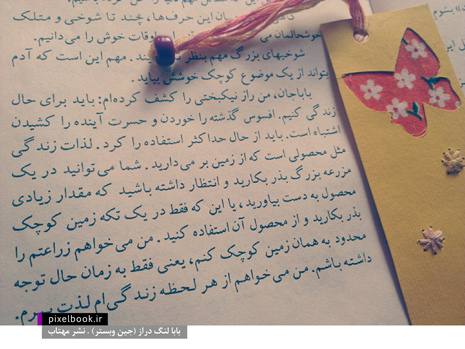 میان این حرف‌ها، چند تا شوخی و متلک
اوقات خوش را می‌دانیم.
شوخیهای بزرگ مهم بنظر نمی‌آیند. مهم این است که آدم
بتواند از یک موضوع کوچک خوشش بیاید.
باباجان، من راز نیکبختی را کشف کرده‌ام: باید برای حال
زندگی کنیم. افسوس گذشته را خوردن و حسرت آینده را کشیدن
اشتباه است. باید از حال حداکثر استفاده را کرد. لذات زندگی
مثل محصولی است که از زمین بر می‌دارید. شما می‌توانید در یک
مزرعه بزرگ بذر بکارید و انتظار داشته باشید که مقدار زیادی
محصول به دست بیاورید، یا این که فقط در یک تکه زمین کوچک
بذر بکارید و از محصول آن استفاده کنید. من می‌خواهم زراعتم را
محدود به همان زمین کوچک کنم، یعنی فقط به زمان حال توجه
داشته باشم. من می‌خواهم از هر لحظه زندگی‌ام لذت ببرم.
pixelbook.ir
بابا لنگ دراز (جین وبستر) . نشر مهتاب